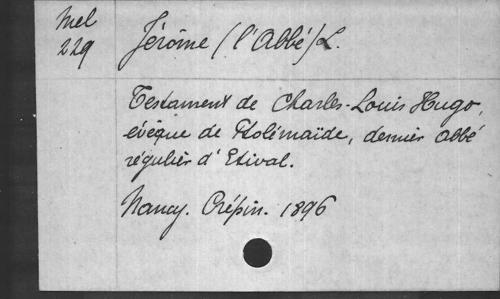 Mel
229
Jérôme (l'Abbé) L.
Testament de Charles-Louis Hugo,
évêque de Ptolémaïde, dernier abbé
régulier d'Etival.
Nancy. Crépin. 1896